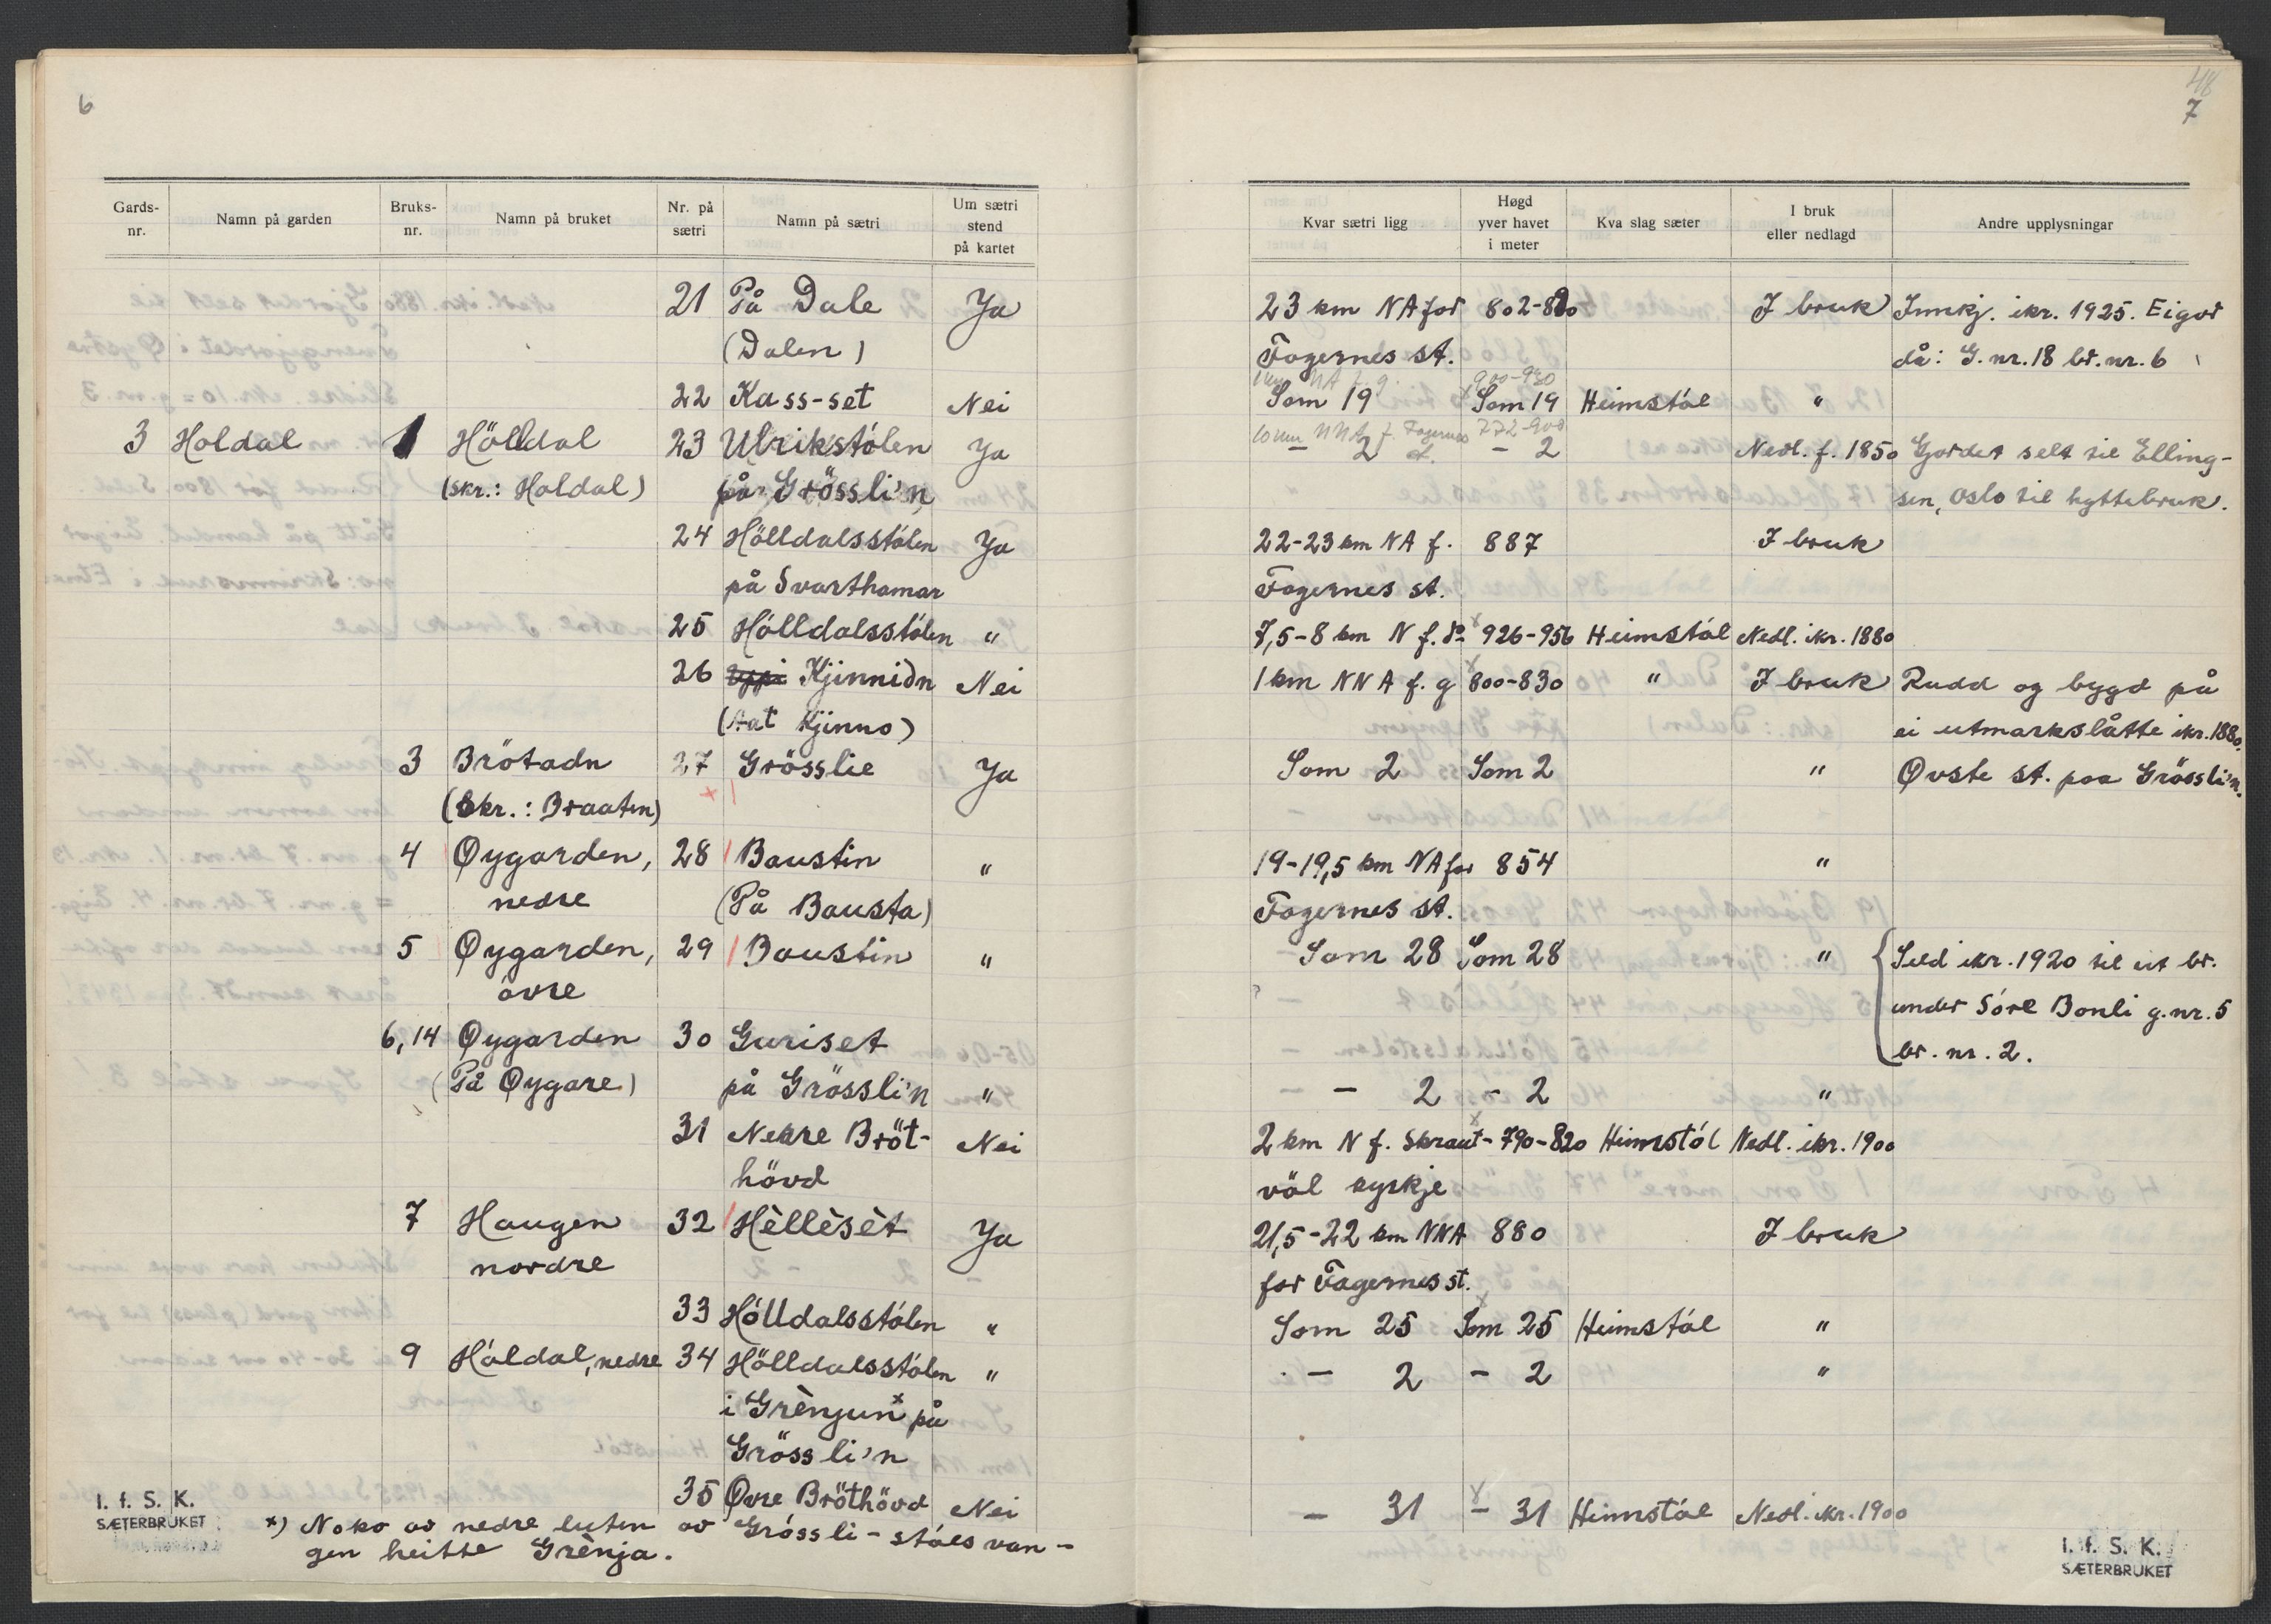 6
Gards-
nr.
Namn på garden
Bruks-
nr.
Namn på bruket
Nr. på
sætri
Namn på sætri
Um sætri
stend
på kartet
21 På Dale Ja
(Dalen)
22 Kass-set Nei
3 Holdal 1 Hölldal 23 Ulrikstólen Ja
(skr.: Holdal) på Grössli'n
24 Hölldalsstólen Ja
på Svarthamar
25 Hölldalsstólen "
26 Kjinnidn Nei
(tat Kjinno)
3 Brötadn 27 Grösslie Ja
(Skr.: Braaten)
4 Øygarden, 28 Baustin "
nedre (På Bausta)
5 Øygarden, 29 Baustin "
övre
6,14 Øygarden 30 Guriset
(På Øygare) på Grössli'n "
31 Nedre Bröt- Nei
hövd
7 Haugen 32 Hèllèsèt Ja
nordre
33 Hölldalsstólen "
9 Hóldal, nedre 34 Hölldalsstólen "
i Grènjun x på
Grössli'n
35 Øvre Bröthövd Nei
x) Noko av nedre luten av Grössli-stólsvan-
gen heitte Grènja.
I. f. S. K.
SÆTERBRUKET
48
7
Kvar sætri ligg
Høgd
yver havet
i meter
Kva slag sæter
I bruk
eller nedlagd
Andre upplysningar
23 km NA for 802-820 I bruk Innkj. ikr. 1925. Eigar
Fagernes st. då: G. nr. 18 br. nr. 6
1 km NA f. g. 900-930
Som 19 x Som 19 Heimstól "
10 km NNA f. Fagernes st. 772-900
— 2 — 2 Nedl. f. 1850 Gjordet selt til Elling-
sen, Oslo til hyttebruk.
22-23 km NA f. 887 I bruk
Fagernes st.
7,5-8 km N f. do x 926-956 Heimstól Nedl. ikr. 1880
1 km NNA f. g x 800-830 " I bruk Rudd og bygd på
ei utmarkslåtte ikr. 1880.
Som 2 Som 2 " Øvste st. paa Grössli'n.
19-19,5 km NA for 854 "
Fagernes st.
Som 28 Som 28 " Seld ikr. 1920 til eit br.
under Söre Bonli g. nr. 5
br. nr. 2.
— 2 — 2 "
2 km N f. Skraut- x 790-820 Heimstól Nedl. ikr. 1900
völ kyrkje
21,5-22 km NNA 880 I bruk
for Fagernes st.
Som 25 x Som 25 Heimstól "
— 2 — 2 "
— 31 x — 31 Heimstól Nedl. ikr. 1900
I. f. S. K.
SÆTERBRUKET